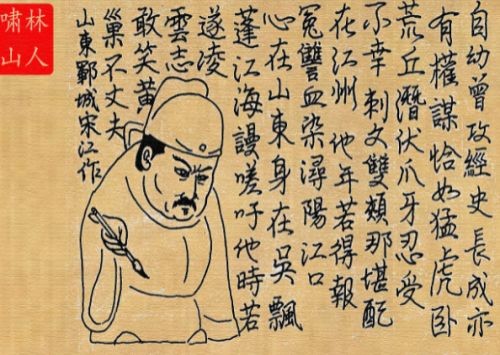 自幼曾攻經史長成亦
有權謀恰如猛虎臥
荒丘潛伏爪牙忍受
不幸刺文雙頰那堪配
在江州他年若得報
冤讐血染潯陽江口
心在山東身在吳飄
蓬江海謾嗟吁他時若
遂凌
雲志
敢笑黃
巢不丈夫
山東鄆城宋江作
嘯林
山人